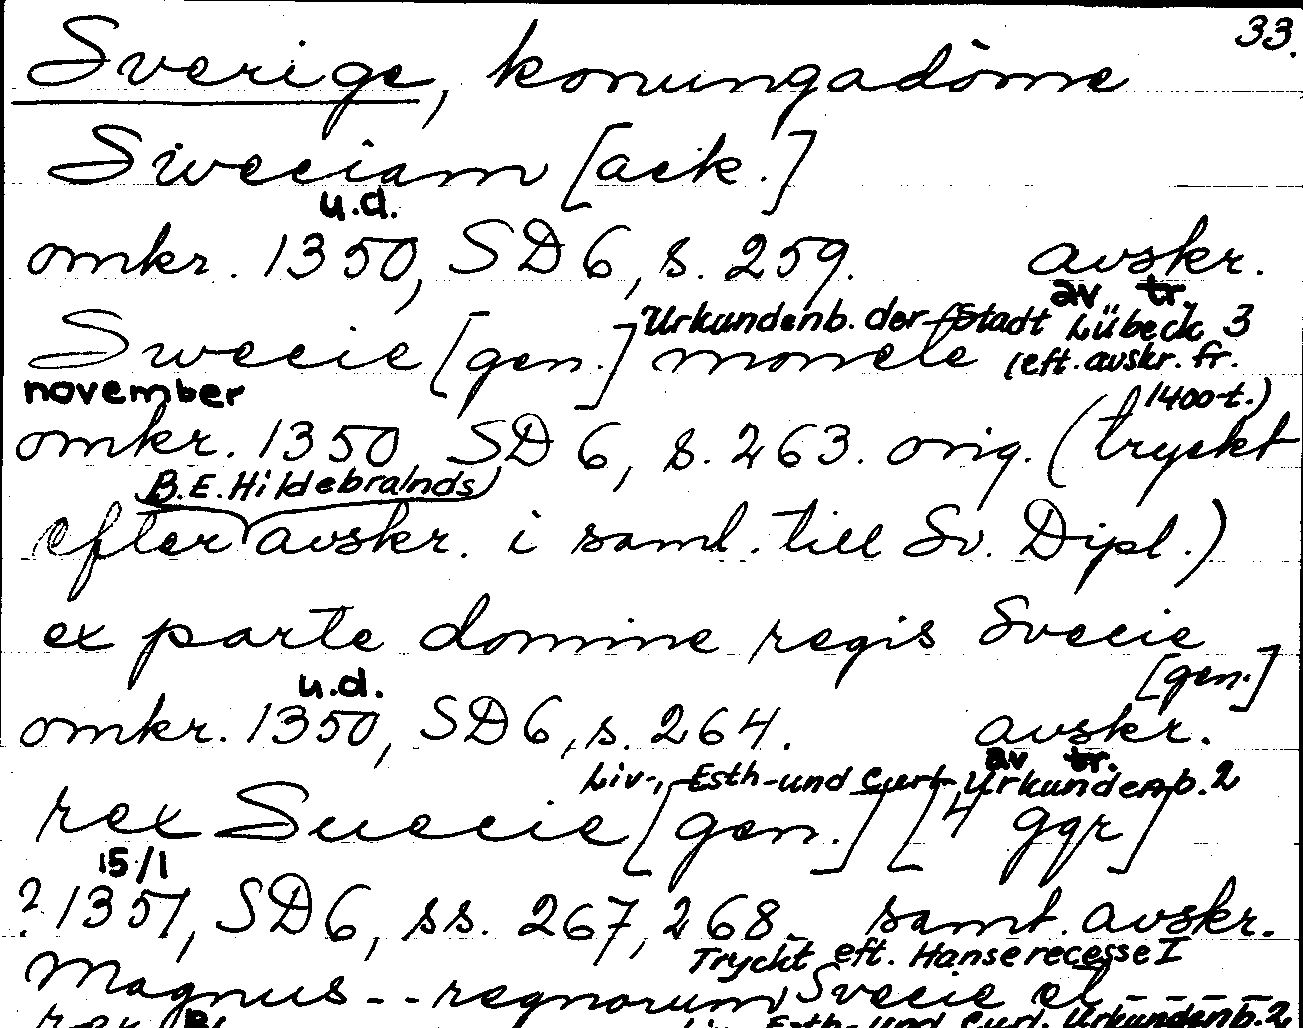 33.
Sverige, konungadöme
Sweciam [ack.]
u.d.
omkr. 1350, SD 6, s. 259. avskr.
av tr.
Urkundenb. der Stadt Lübeck 3
Swecie [gen.] monete (eft. avskr. fr.
november 1400-t.)
omkr. 1350 SD 6, s. 263. orig. (tryckt
B.E. Hildebrands
efter avskr. i saml. till Sv. Dipl.)
ex parte domine regis Svecie
[gen.]
u.d.
omkr. 1350, SD 6, s. 264. avskr.
av tr.
Liv-, Esth-und Curl. Urkundenb. 2
rex Suecie [gen.] [4 ggr]
15/1
? 1351, SD 6, ss. 267, 268. samt. avskr.
Tryckt eft. Hanserecesse I
Magnus -- regnorum Svecie et ----
Liv- Esth-und Curl. Urkundenb. 2